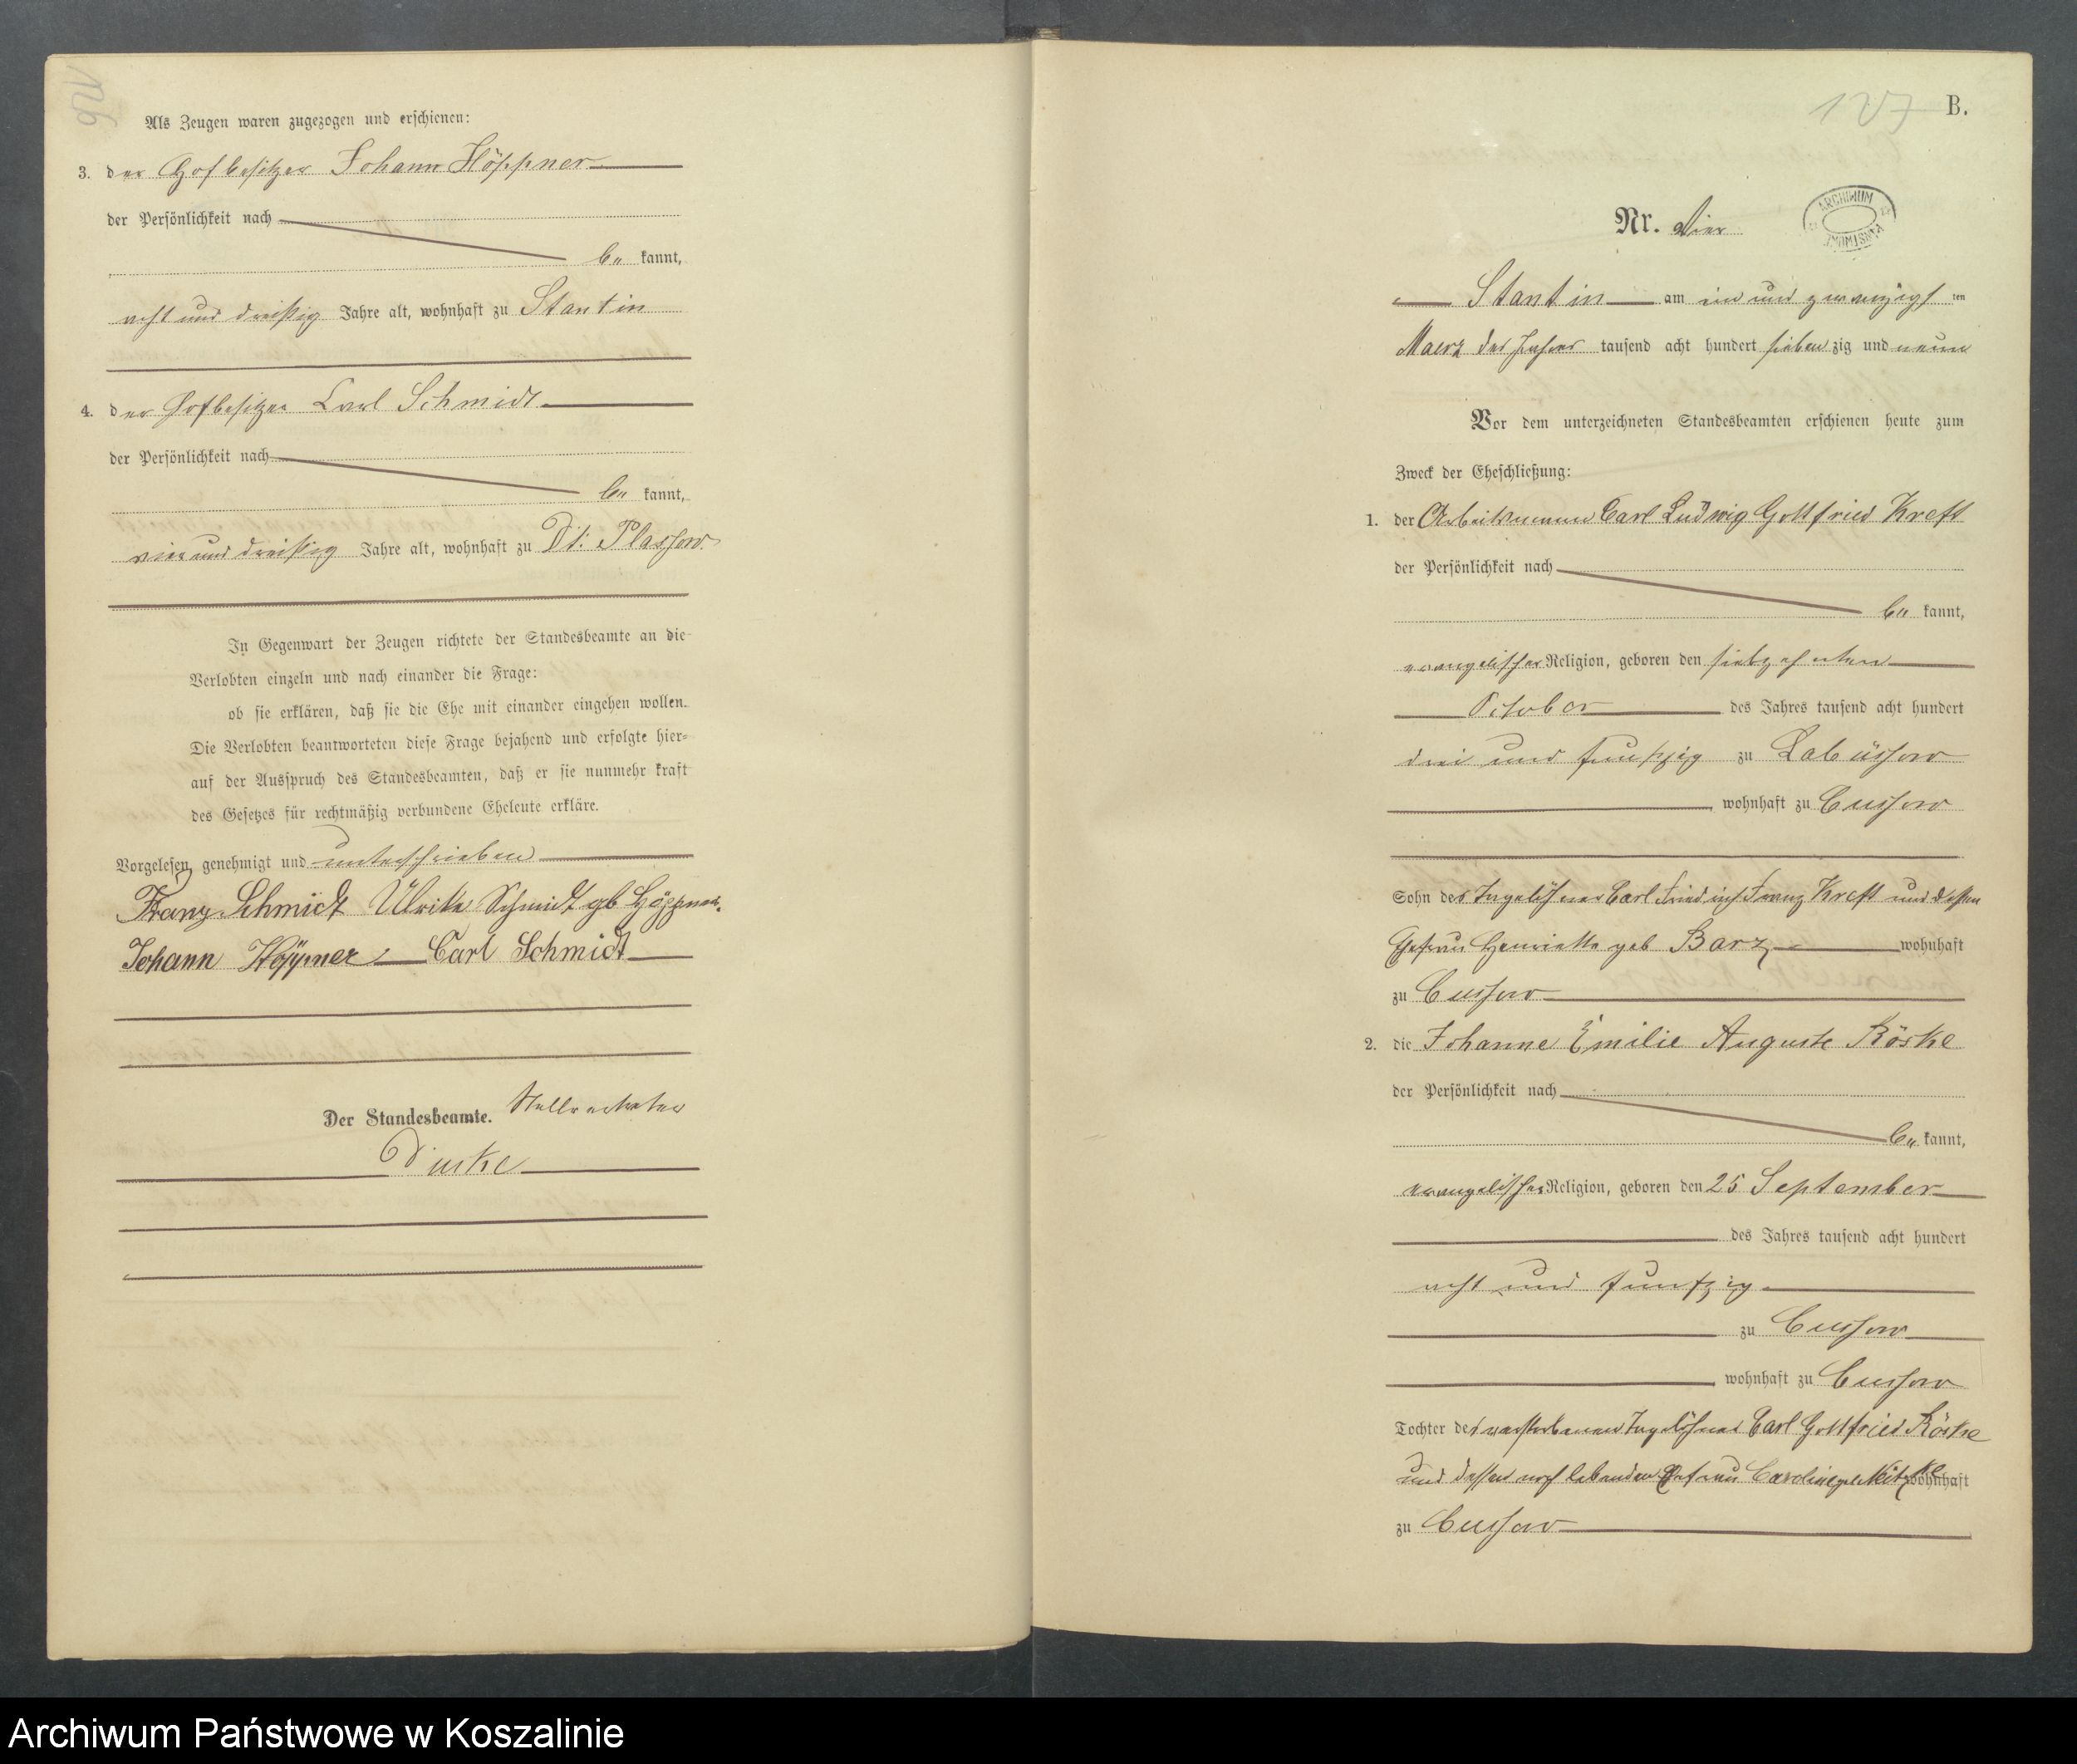 126
Als Zeugen waren zugezogen und erschienen:
3. der Hofbesitzer Johann Höppner
der Persönlichkeit nach
be kannt,
acht und dreißig Jahre alt, wohnhaft zu Stantin
4. der Hofbesitzer Carl Schmidt
der Persönlichkeit nach
be kannt,
vier und dreißig Jahre alt, wohnhaft zu Dt: Plassow
In Gegenwart der Zeugen richtete der Standesbeamte an die
Verlobten einzeln und nach einander die Frage:
ob sie erklären, daß sie die Ehe mit einander eingehen wollen.
Die Verlobten beantworteten diese Frage bejahend und erfolgte hier-
auf der Ausspruch des Standesbeamten, daß er sie nunmehr kraft
des Gesetzes für rechtmäßig verbundene Eheleute erkläre.
Vorgelesen, genehmigt und unterschrieben
Franz Schmidt Ulrike Schmidt gb Höppner.
Johann Höppner Carl Schmidt
Der Standesbeamte. Stellvertreter
127 B.
ARCHIWUM PAŃSTWOWE
Nr. Vier
Stantin am ein und zwanzigs ten
Maerz des Jahres tausend acht hundert sieben zig und neun
Vor dem unterzeichneten Standesbeamten erschienen heute zum
Zweck der Eheschließung:
1. der Arbeitsmann Carl Ludwig Gottfried Kreft
der Persönlichkeit nach
be kannt,
evangelischer Religion, geboren den siebzehnten
October des Jahres tausend acht hundert
drei und funfzig zu Labüssow
wohnhaft zu Cussow
Sohn des Tagelöhner Carl Friedrich Franz Kreft und dessen
Ehefrau Henriette geb Barz wohnhaft
zu Cussow
2. die Johanne Emilie Auguste Röske
der Persönlichkeit nach
be kannt,
evangelischer Religion, geboren den 25 September
des Jahres tausend acht hundert
acht und funfzig
zu Cussow
wohnhaft zu Cussow
Tochter des verstorbenen Tagelöhner Carl Gottfried Röske
und dessen noch lebenden Ehefrau Caroline geb Nitzke wohnhaft
zu Cussow
Archiwum Państwowe w Koszalinie